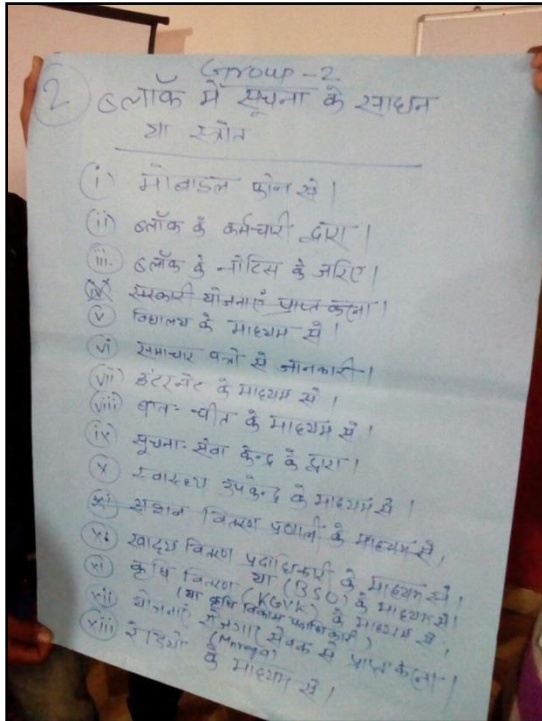 Group-2
2 ब्लॉक में सूचना के साधन
या स्त्रोत
(i) मोबाइल फोन से।
(ii) ब्लॉक के कर्मचारी द्वारा।
(iii) ब्लॉक के नोटिस के जरिए।
(iv) सरकारी योजनाएं प्राप्त करना।
(v) विद्यालय के माध्यम से।
(vi) समाचार पत्रो से जानकारी।
(vii) इंटरनेट के माध्यम से।
(viii) बात-चीत के माध्यम से।
(ix) सूचना-सेवा केन्द्र के द्वारा।
(x) स्वास्थ्य उपकेन्द्र के माध्यम से।
(xi) राशन वितरण प्रणाली के माध्यम से,
(xi) खाद्य वितरण पदाधिकारी के माध्यम से।
या (BSO) के माध्यम से।
(xi) कृषि वितरण (KGVK) के माध्यम से।
(या कृषि विकास पदाधिकारी)
(xii) योजनाएं रोजगार सेवक से प्राप्त करना।
(Mnrega)
(xiii) रेडियो के माध्यम से।